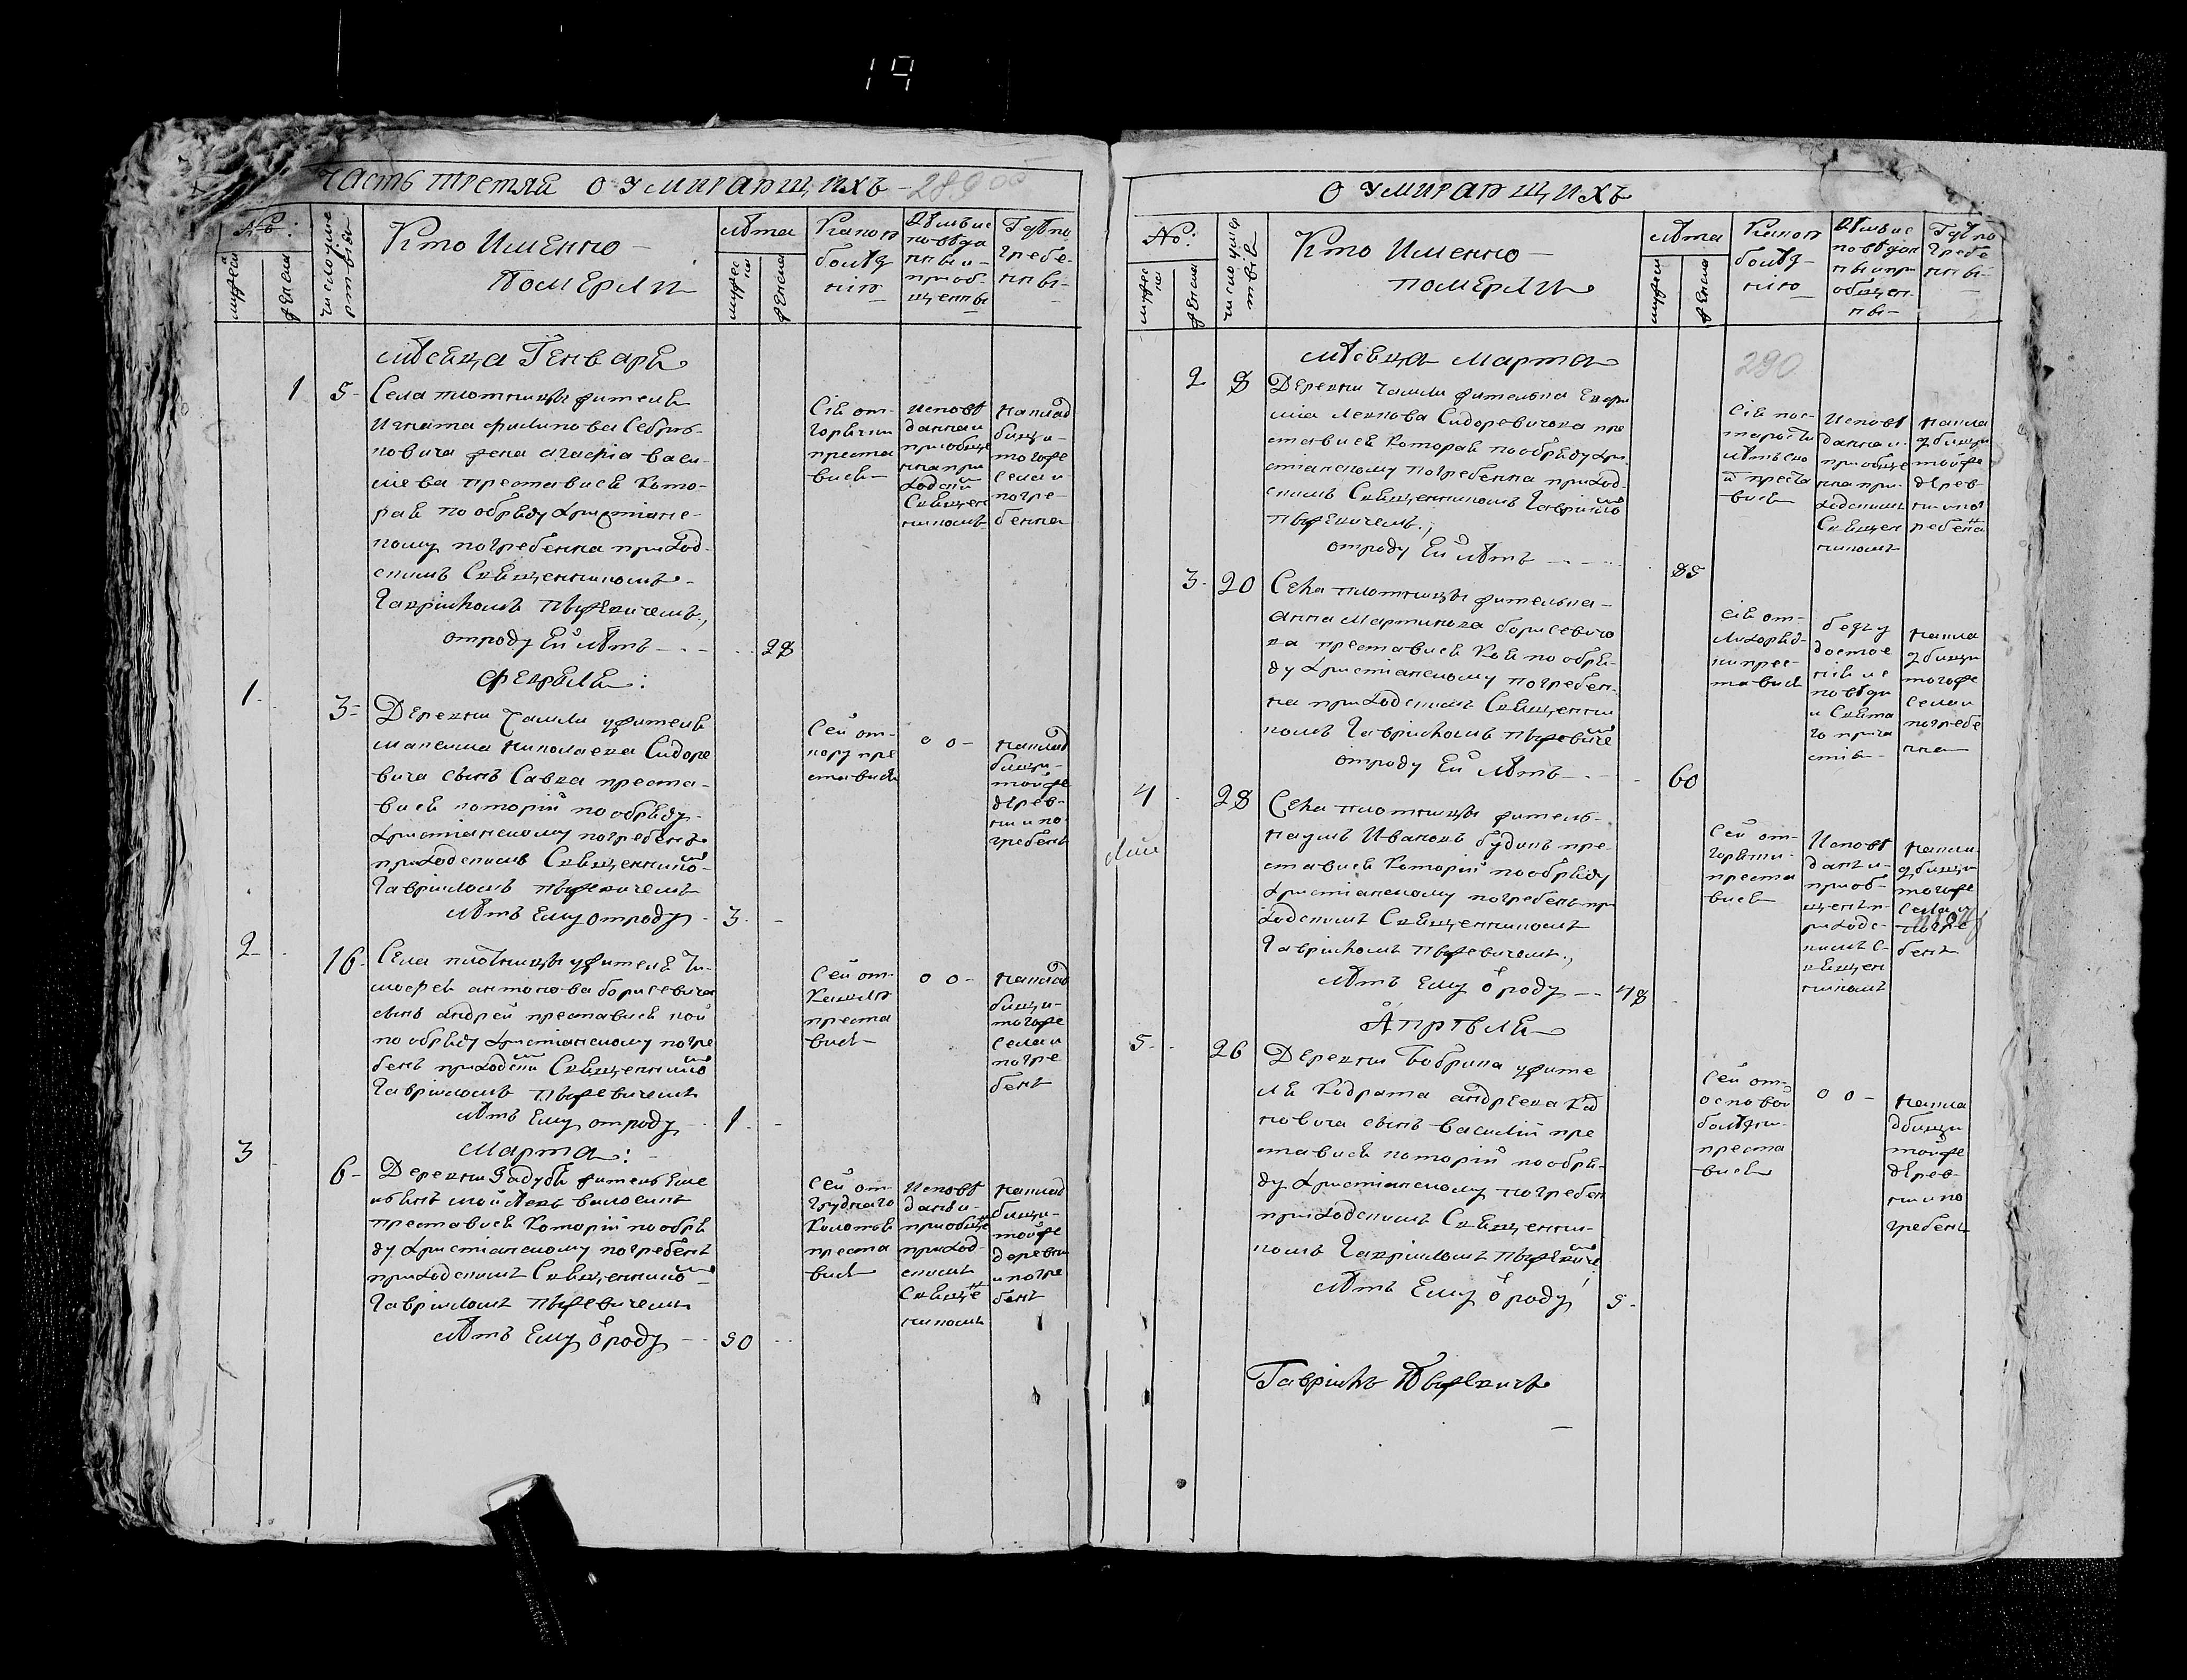 19
Часть третяя о умирающихъ
289
№:
мужеск
женска
число умертвы
Кто Именно
Померли
лѣта
мужеска
женска
Какою
болѣз
нію
Кѣмъ ис
повѣда
нны и
приоб-
щенны
Гдѣ по
гребе-
нны
мѣсяца Генваря
1
5
Села плотницы жителя
Игната филипова
новича жена агафіа васи-
лиева преставися кото-
рая по обряду христианс-
кому погребенна приход-
скимъ Священникомъ
Гавріиломъ
отроду Ей лѣтъ
28
Сія от-
горячки
преста
вися
исповѣ
данна и
приобще
нна при
ходски
Священ
никомъ
на клад
бищи
тогоже
села и
погре-
бенна
февраля:
1
3
Деревни жителя
николаева Сидоре
вича сынъ Савва преста-
вися которій по обряду
христианскому погребенъ
приходскимъ Священнико
Гавріиломъ
лѣтъ Ему отроду
3
Сей от-
кору пре
ставися
0 0
на клад
бищи
тойже
дерев-
ни и по
гребенъ
2
16
Села плотницы жителя Ти-
мофея антонова борисевича
сынъ андрей преставися кой
по обряду христианскому погре
бенъ приходски Священнико
Гавріиломъ
лѣтъ Ему отроду
1
Сей от-
Кашлю
преста
вися
0 0
на клад
бищи
тогоже
села и
погре
бенъ
Марта:
3
6
Деревни Задубя житель
преставися которій по обря
ду христианскому погребенъ
приходскимъ Священнико
Гавріиломъ
лѣтъ Ему ороду
50
Сей от-
груднаго
Колотья
преста
вися
исповѣ
данъ и
приобще
приход-
скимъ
Священ
никомъ
на клад
бищи
тойже
деревни
и погре
бенъ
о умирающихъ
№:
мужеска
женска
число умер
твы
Кто Именно
померли
лѣта
мужеск
женска
Какою
болѣз-
нію
Кѣмъ ис
повѣдан
ны и при
общен-
ны
Гдѣ по
гребе
нны
290
мѣсяца марта
2
8
Деревни жительна Евфи
міа Сидоревичова пре
ставися которая по обряду хри
стіанскому погребенна приход-
скимъ Священникомъ Гавріило
отроду Ей лѣтъ
85
Сія пос-
тарости
лѣтъ сво
й преста
вися
исповѣ
данна и
приобще
нна при-
ходскимъ
Священ
никомъ
на кла
дбищи
тойже
дерев-
ни и пог
ребенна
3
20
Села плотницы жительна
анна Мартинова борисевичо
ва преставися коя по обря-
ду христіанскому погребен-
на приходскимъ Священни
комъ Гавріиломъ
отроду Ей лѣтъ
60
сія от-
лихорад-
ки прес-
тавися
без у
достое
нія ис
повѣди
и Свята
го прича
стія
на кла
дбищи
тогоже
села и
погребе
нна
4
28
Села плотницы житель
наумъ Ивановъ будикъ пре-
ставися которій по обряду
христіанскому погребенъ при
ходскимъ Священникомъ
Гавріиломъ
лѣтъ Ему ороду
48
Сей от-
горячки
преста
вися
Исповѣ
данъ и
приоб-
щенъ п-
риходс-
кимъ С-
вящен
никомъ
на кла-
дбищи
тогоже
села и
погре
бенъ
Апрѣля
5
26
Деревни Бобрика жите
ля Кодрата андреева
новича сынъ василій пре
ставися которій по обря-
ду христіанскому погребен
приходскимъ Священни-
комъ Гавріиломъ
лѣтъ Ему ороду
5
Сей от-
оспової
болѣзни
преста
вися
0 0
на кла
дбищи
тойже
дерев-
ни и по
гребенъ
Гавріилъ